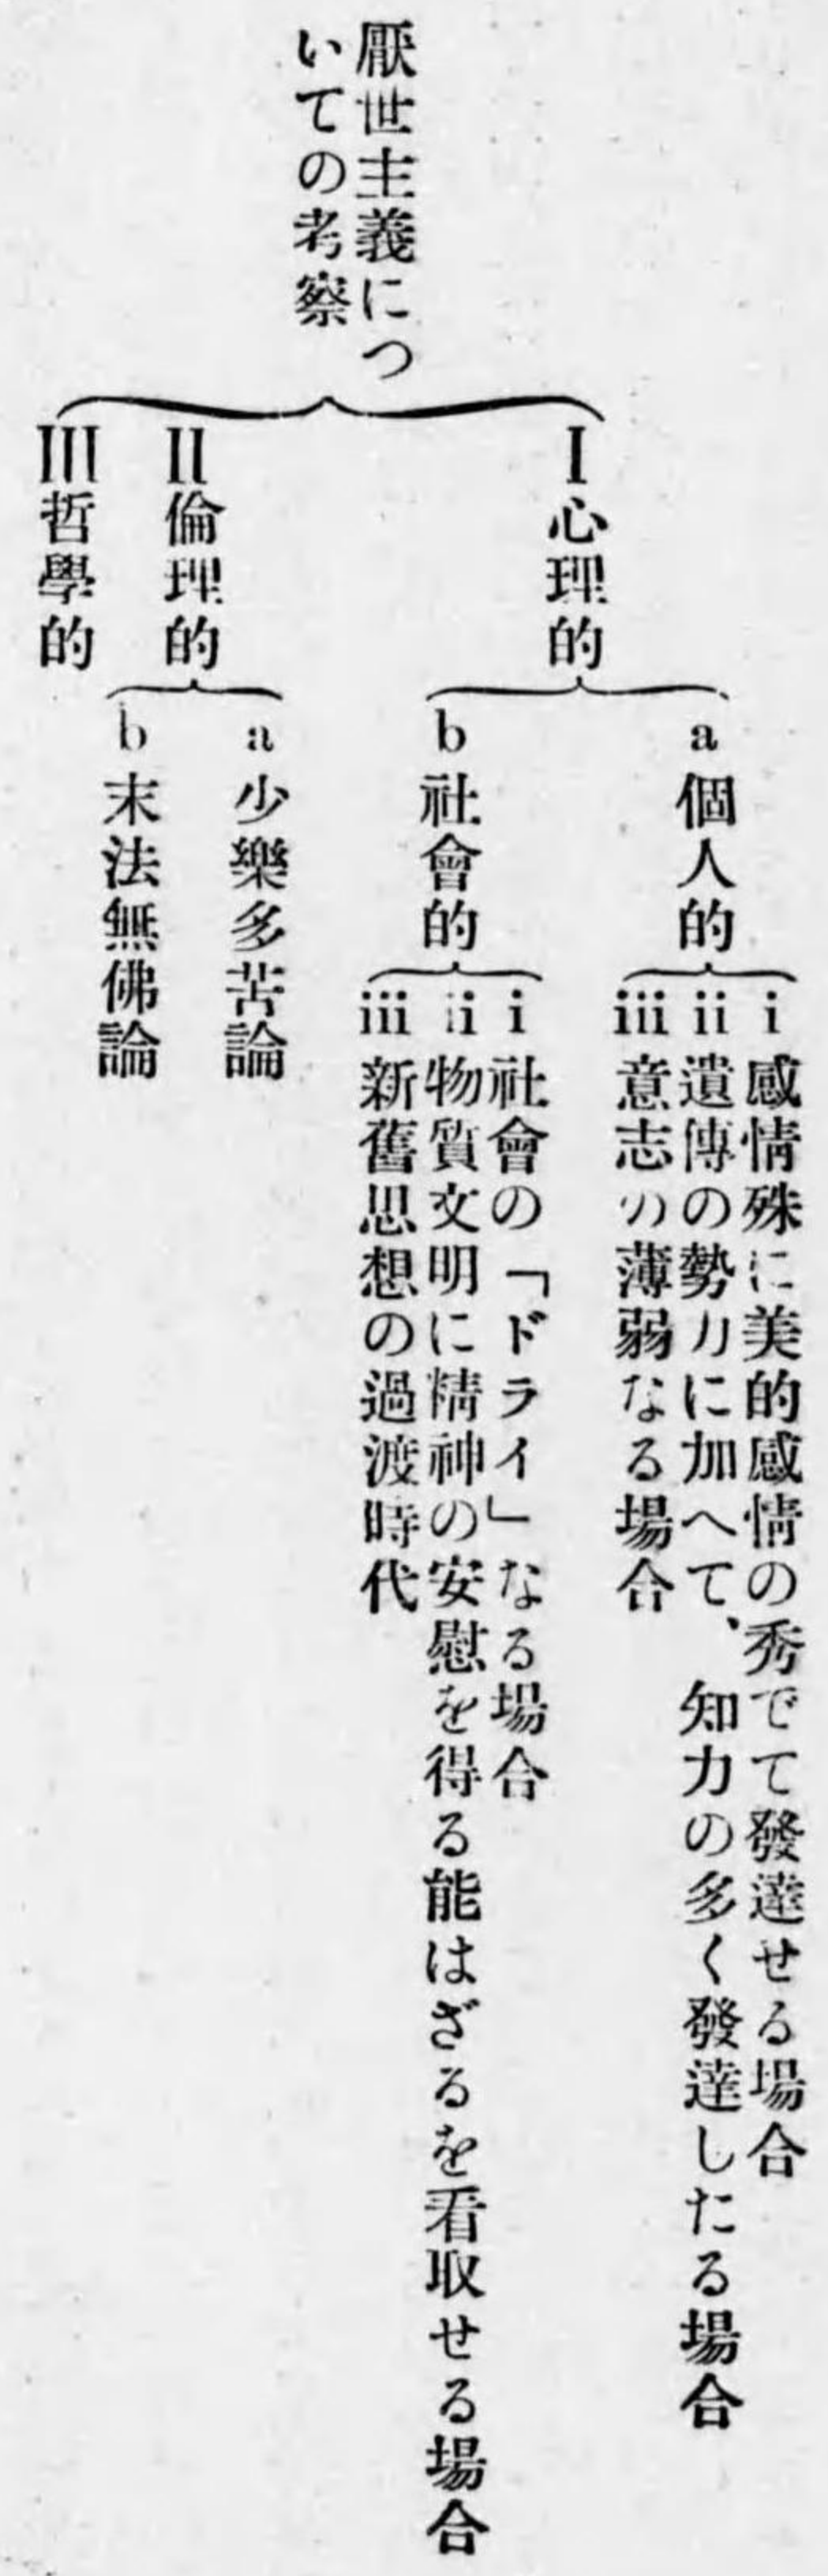 厭世主義につ
いての考察
I 心理的
a 個人的
i 感情殊に美的感情の秀でて發達せる場合
ii 遺傳の勢力に加へて、知力の多く發達したる場合
iii 意志の薄弱なる場合
b 社會的
i 社會の「ドライ」なる場合
ii 物質文明に精神の安慰を得る能はざるを看取せる場合
iii 新舊思想の過渡時代
II 倫理的
a 少樂多苦論
b 末法無佛論
III 哲學的